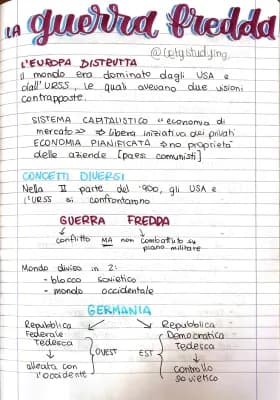 LA guerra fredda
@cetystudying
L'EUROPA DISTRUTTA
Il mondo era dominato dagli USA e
dall'URSS, le quali avevano due visioni
contrapposte.
SISTEMA CAPITALISTICO "economia di
mercato" => libera iniziativa dei privati
ECONOMIA PIANIFICATA => no proprietà
delle aziende [paesi comunisti]
CONCETTI DIVERSI
Nella II parte del '900, gli USA e
l'URSS si confrontarono
GUERRA FREDDA
conflitto MA non combattuto su
piano militare
Mondo diviso in 2:
- blocco sovietico
- mondo occidentale
GERMANIA
Repubblica Federale Tedesca
alleata con l'occidente
OVEST
EST
Repubblica Democratica Tedesca
controllo sovietico